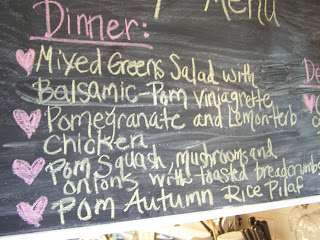 Menu
Dinner:
Mixed Greens Salad with
Balsamic-Pom Vinjagrette
Pomegranate and Lemon-terb
Chicken
Pom Squash, mushrooms and
onions with toasted breadcrumbs
Pom Autumn Rice Pilaf